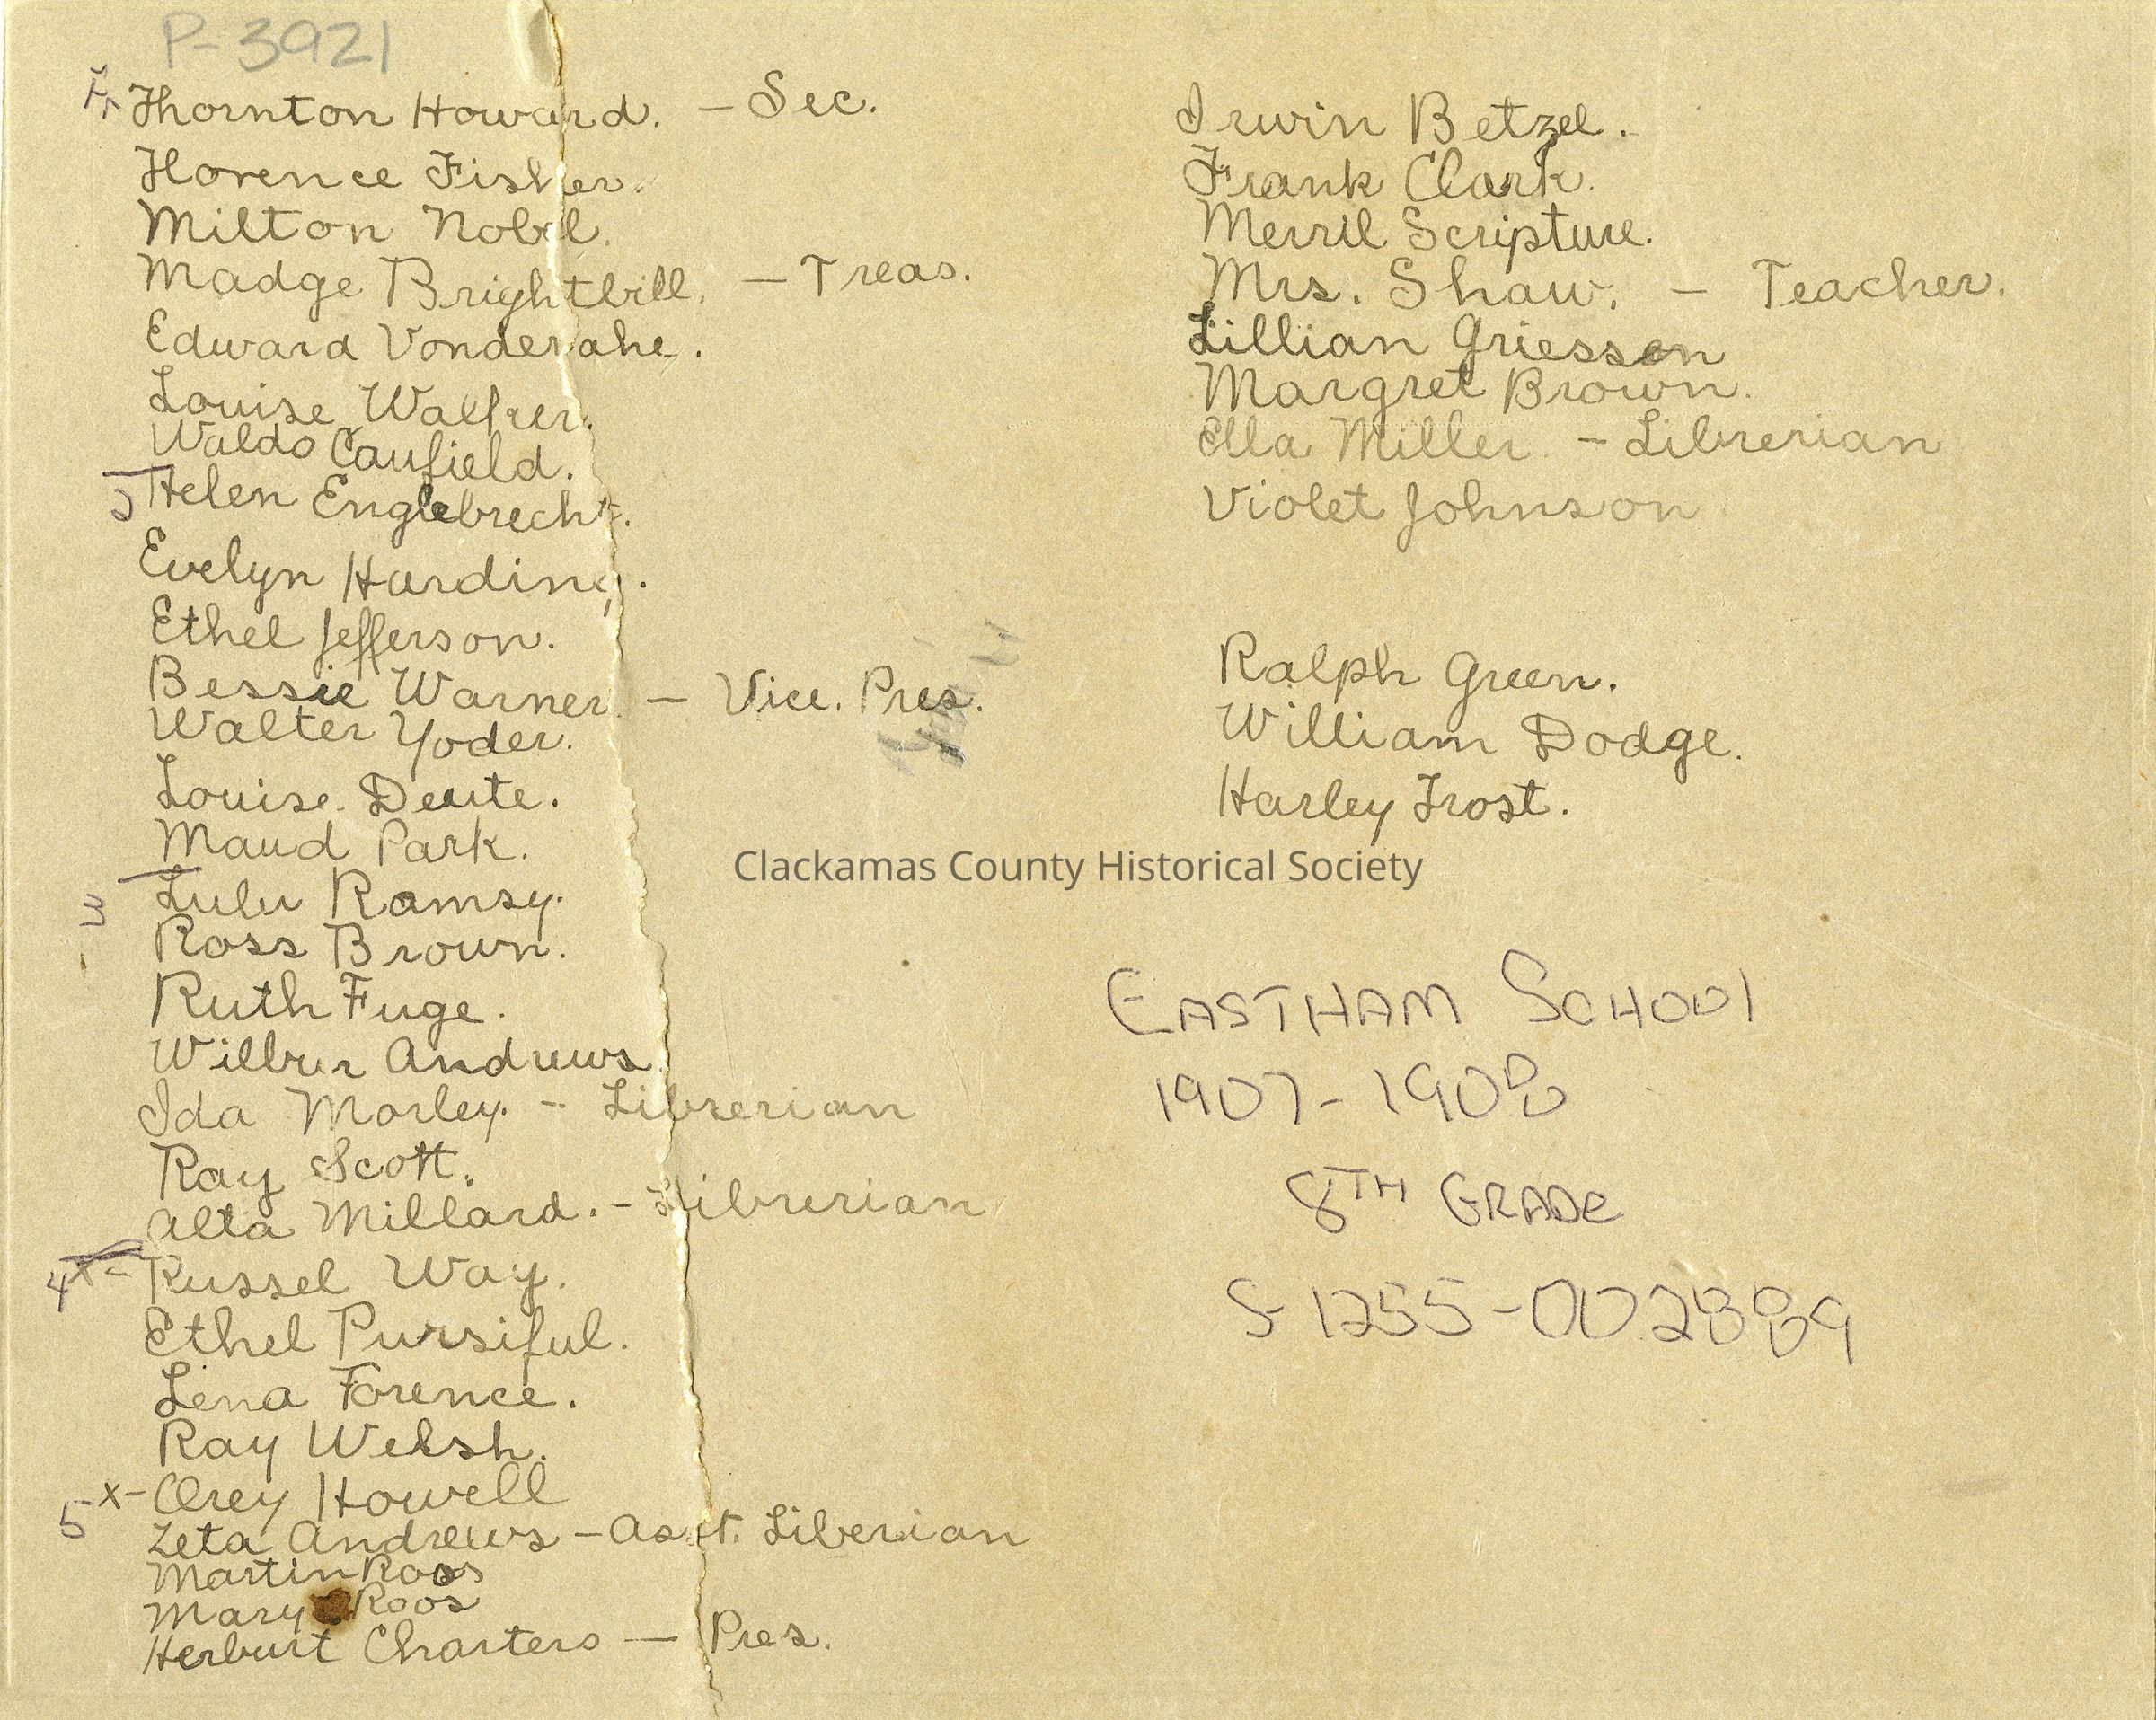 P-3921
Thornton Howard. - Sec.
Florence Fisher.
Milton Nobel.
Madge Brightbill. - Treas.
Edward Vonderahe.
Louise Walfrer.
Waldo Caufield.
Helen Englebrecht.
Evelyn Harding.
Ethel Jefferson.
Bessie Warner. - Vice. Pres.
Walter Yoder.
Louise Deute.
Maud Park.
3 Lulu Ramsy.
Ross Brown.
Ruth Fuge.
Wilbur Andrews.
Ida Morley. - Librerian
Ray Scott.
Alta Millard. - Librerian
4 x- Russel Way.
Ethel Pursiful.
Lena Forence.
Ray Welsh.
5 x- Orey Howell
Zeta Andrews - Asst. Liberian
Martin Roos
Mary Roos
Herburt Charters - Pres.
Irwin Betzel.
Frank Clark.
Merril Scripture.
Mrs. Shaw. - Teacher.
Lillian Griessen
Margret Brown.
Ella Miller. - Librerian
Violet Johnson
Ralph Green.
William Dodge.
Harley Frost.
Clackamas County Historical Society
EASTHAM SCHOOL
1907-1908
8TH GRADE
S 1255-002889